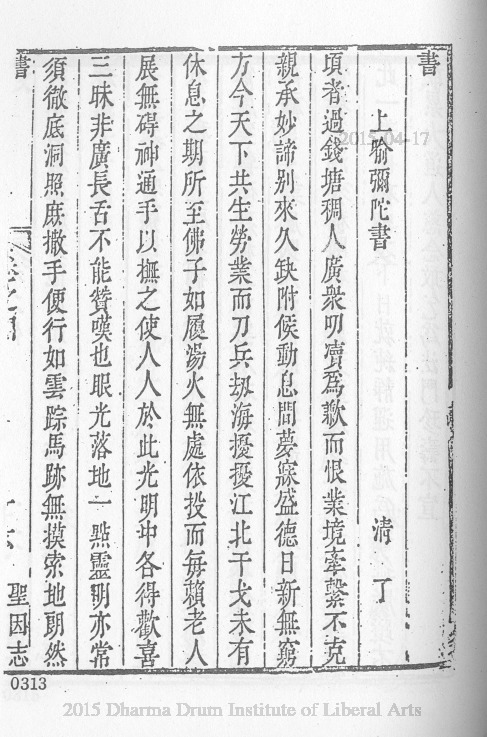 書
上喻彌陀書　清了
頃者過錢塘稠人廣衆叨瀆爲歉而恨業境牽繫不克
親承妙諦别來久缺附候動息間夢寐盛德日新無窮
方今天下共生勞業而刀兵刼海擾擾江北干戈未有
休息之期所至佛子如履湯火無處依投而每賴老人
展無碍神通手以撫之使人人於此光明中各得歡喜
三昧非廣長舌不能贊嘆也眼光落地一點靈明亦常
須徹底洞照庶撒手便行如雲踪馬跡無摸索地朗然
書
聖因志
0313
2015-04-17
2015 Dharma Drum Institute of Liberal Arts